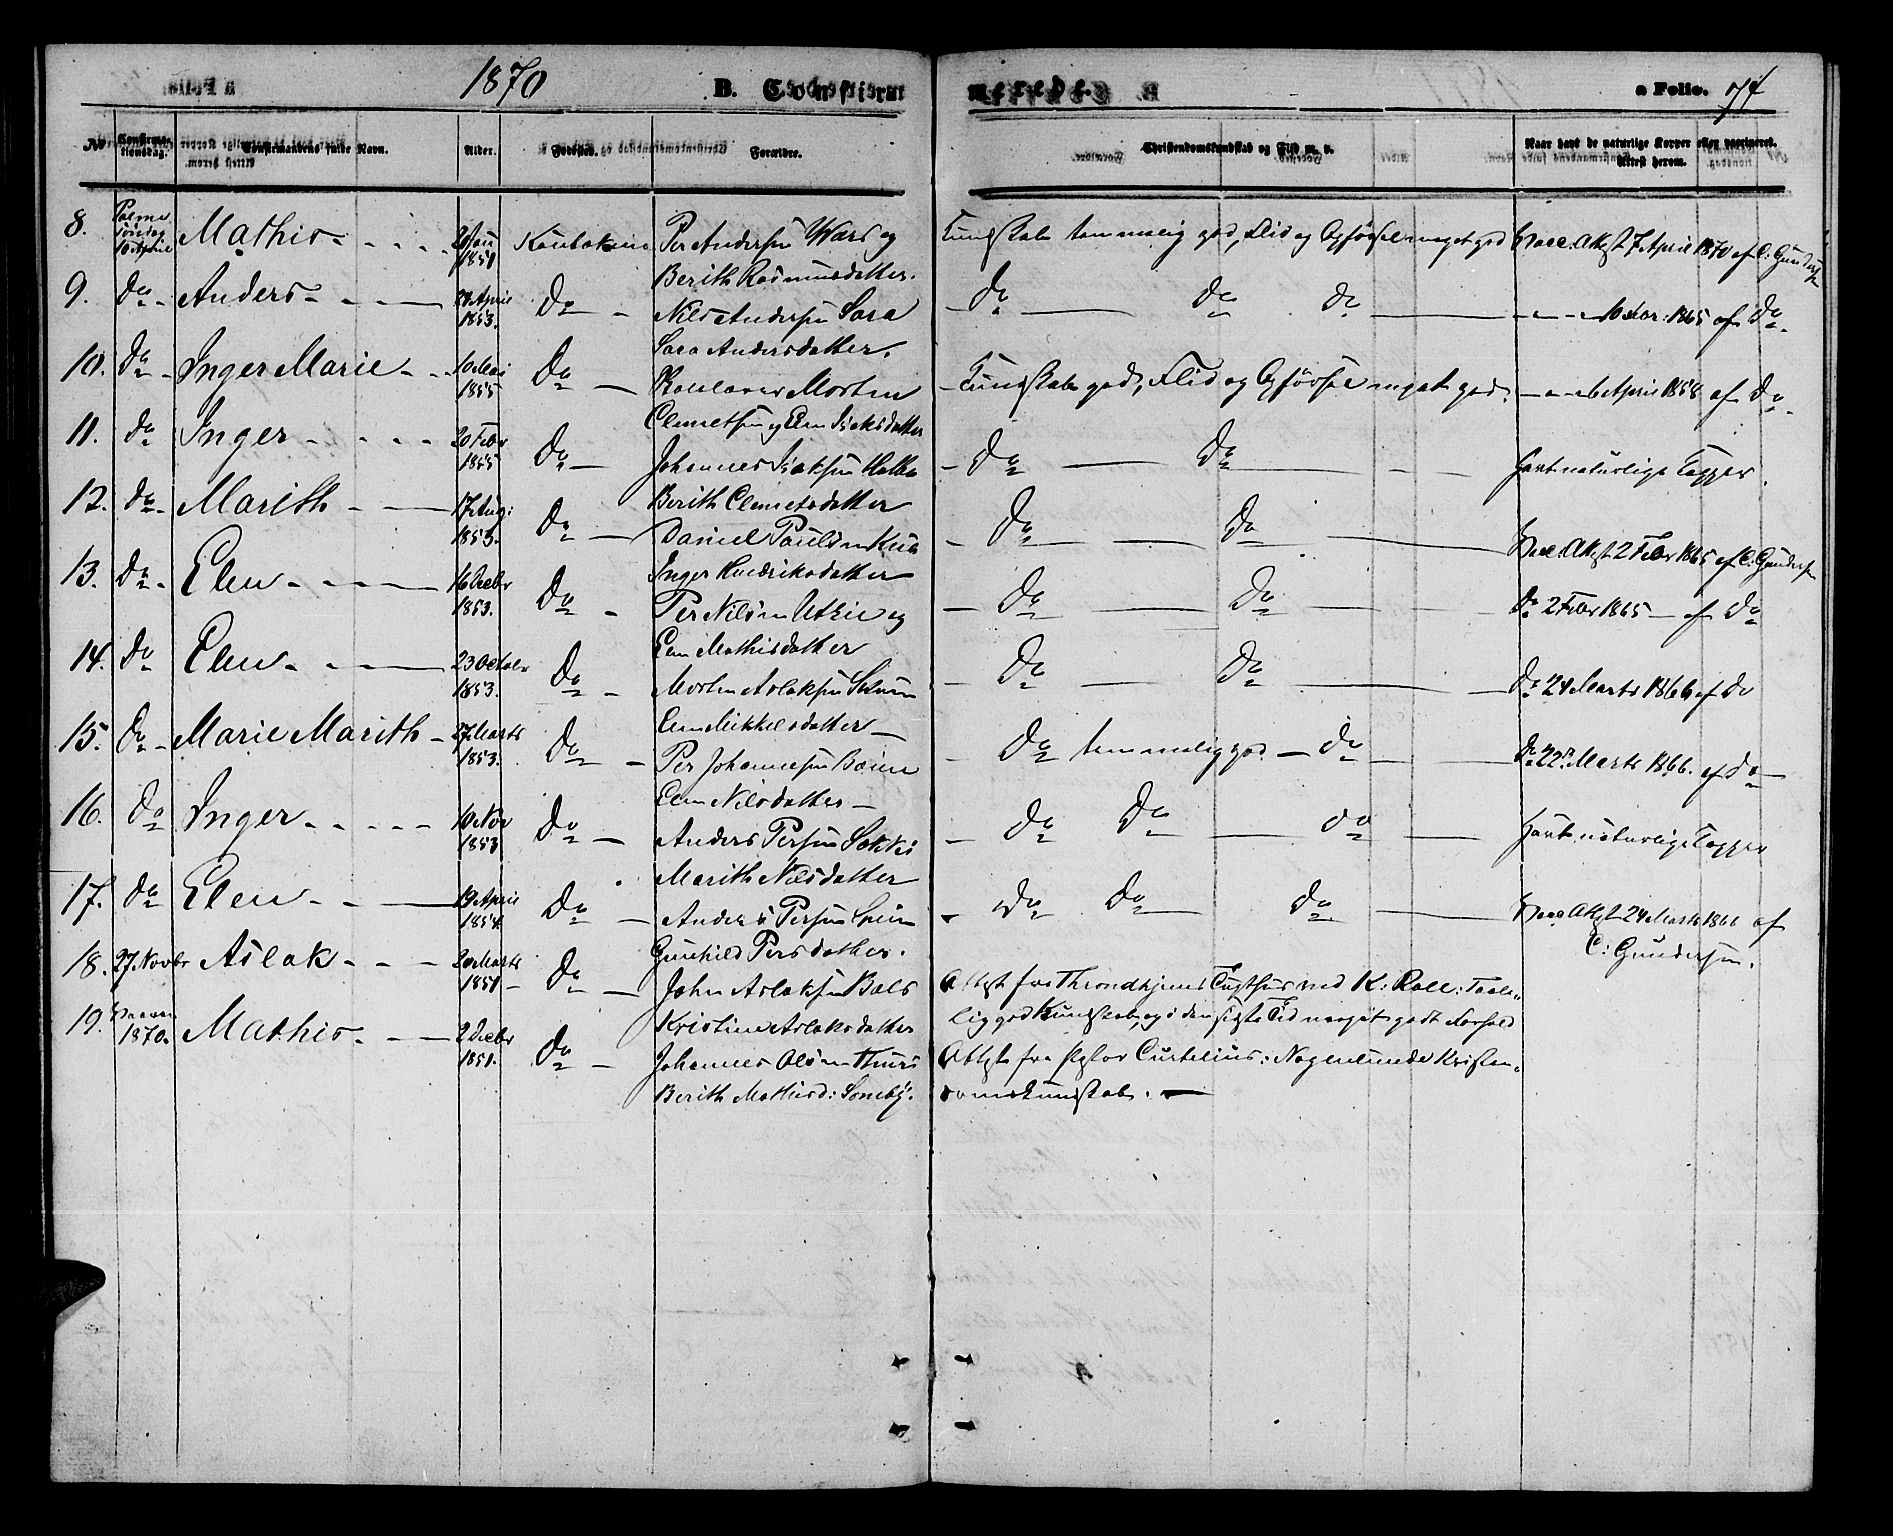 1870 B. Confirmerede. a Folio. 74
No Confirmationsdag. Confirmandens fulde Navn. Alder. Fødested. Forældre. Christendomskundskab og Flid m. v. Naar havt de naturlige Kopper eller vaccineret. Attest herom.
8. Palmesøndag 10 April Mathis 1851 Koutokeino Per Andersen Wars og Kundskab temmelig god, Flid og Opførsel meget god Vacc. Attest 7 April 1870 af C: Gundersen
Berith Rasmusdatter.
9. Do Anders 1853. Do Nils Andersen Sara Do Do Do 1865 af Do
Sara Andersdatter.
10. Do Inger Marie 10 Mai 1855 Do Morten Kundskab god, Flid og Opførsel meget god. April 1858 af Do
Clemetsen og Elen Isaksdatter
11. Do Inger 20 Febr 1855 Do Johannes Isaksen Hætta Do Do havt naturlige Kopper
Berith Clemetsdatter
12. Do Marith 17 Aug: 1853. Do Daniel Poulsen Do Do Vacc. Attest 2 Febr 1865 af C: Gundersen
Inger Hendriksdatter
13. Do Elen 16 Decbr 1853. Do Per Nilsen Utsie og Do Do Do 2 Febr 1865 af Do
Elen Mathisdatter
14. Do Elen 23 Octobr 1853. Do Morten Aslaksen Do Do Do 24 Marts 1866 af Do
Elen Mikkelsdatter
15. Do Marie Marith 27 Marts 1853. Do Per Johannesen Do temmelig god Do Do 22 Marts 1866. af Do
Elen Nilsdatter
16. Do Inger 10 Nov 1853 Do Anders Persen Do Do Do havt naturlige Kopper
Marith Nilsdatter
17. Do Elen 19 April 1854. Do Anders Persen Do Do Do Vacc Attest 24 Marts 1866 af
Gunhild Persdatter. C: Gundersen.
18. 27 Novbr Aslak 20 Marts 1851 Do John Aslaksen Bals Attest fra Throndhjems Tugthus med K: Roll: Taale-
19. 1870. Mathis 2 Decbr 1851. Do Kristine Aslaksdatter lig god Kundskab, og i den sidste Tid meget godt Forhold
Johannes Olsen Thuri Attest fra Pastor Curtelius: Nogenlunde Kristen-
Berith Mathisd: Somby. domskundskab.